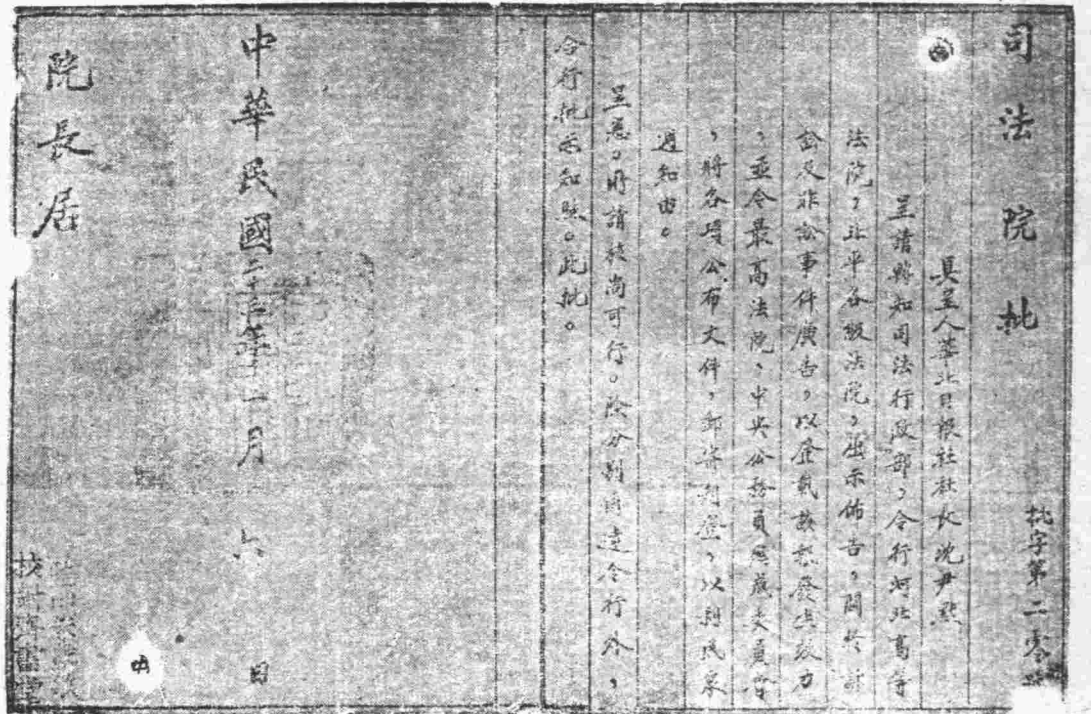 司法院批
批字第二零號
具呈人華北日報社社長沈尹默
呈請轉知司法行政部，令行河北高等
法院，北平各級法院，揭示佈告，關於訴
訟及非訟事件廣告，以登載該報發生效力
，並令最高法院、中央公務員懲戒委員會
，將各項公布文件，郵寄刊登，以利民眾
週知由。
呈悉。所請核尚可行。除分別函達令行外，
合行批示知照。此批。
中華民國二十 年十一月六日
院長居
校對